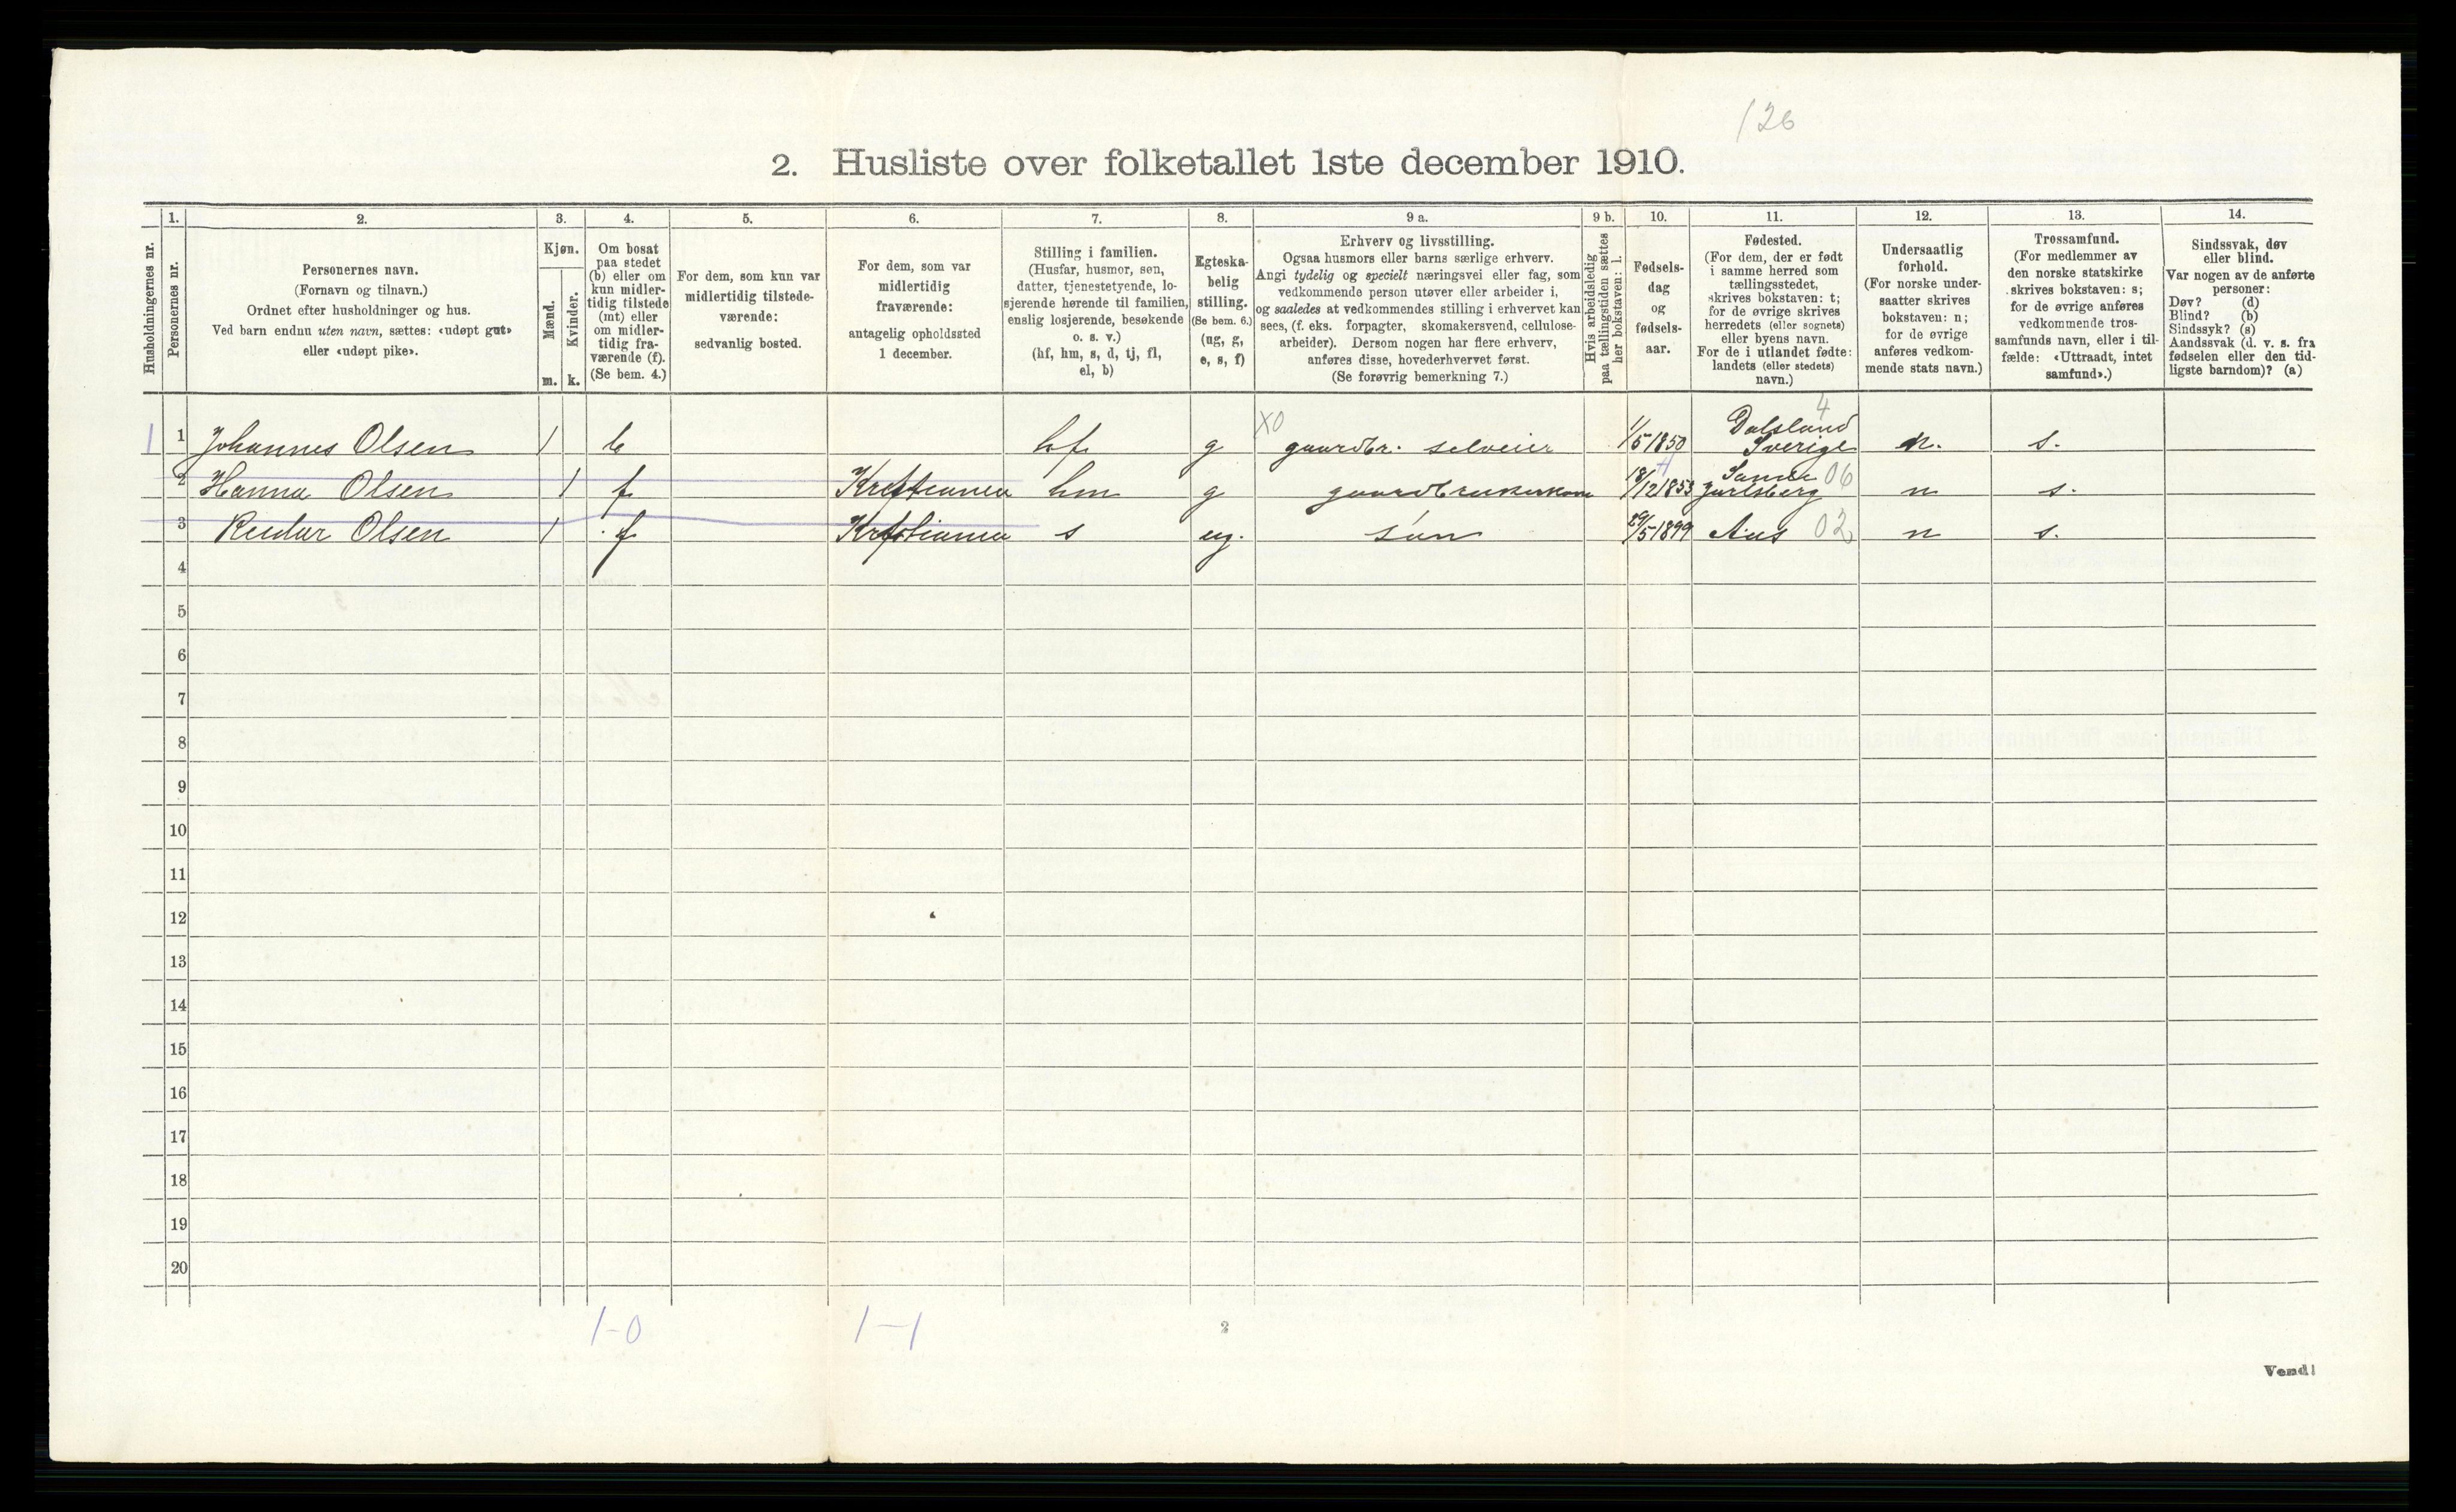 126
2. Husliste over folketallet 1ste december 1910.
Husholdningernes nr.
1.
Personernes nr.
2.
Personernes navn.
(Fornavn og tilnavn.)
Ordnet efter husholdninger og hus.
Ved barn endnu uten navn, sættes: «udøpt gut»
eller «udøpt pike».
3.
Kjøn.
Mænd.
Kvinder.
m. k.
4.
Om bosat
paa stedet
(b) eller om
kun midler-
tidig tilstede
(mt) eller
om midler-
tidig fra-
værende (f).
(Se bem. 4.)
5.
For dem, som kun var
midlertidig tilstede-
værende:
sedvanlig bosted.
6.
For dem, som var
midlertidig
fraværende:
antagelig opholdssted
1 december.
7.
Stilling i familien.
(Husfar, husmor, søn,
datter, tjenestetyende, lo-
sjerende hørende til familien,
enslig losjerende, besøkende
o. s. v.)
(hf, hm, s, d, tj, fl,
el, b)
8.
Egteska-
belig
stilling.
(Se bem. 6.)
(ug, g,
e, s, f)
9 a.
Erhverv og livsstilling.
Ogsaa husmors eller barns særlige erhverv.
Angi tydelig og specielt næringsvei eller fag, som
vedkommende person utøver eller arbeider i,
og saaledes at vedkommendes stilling i erhvervet kan
sees, (f. eks. forpagter, skomakersvend, cellulose-
arbeider). Dersom nogen har flere erhverv,
anføres disse, hovederhvervet først.
(Se forøvrig bemerkning 7.)
9 b.
Hvis arbeidsledig
paa tællingstiden sættes
her bokstaven: l.
10.
Fødsels-
dag
og
fødsels-
aar.
11.
Fødested.
(For dem, der er født
i samme herred som
tællingsstedet,
skrives bokstaven: t;
for de øvrige skrives
herredets (eller sognets)
eller byens navn.
For de i utlandet fødte:
landets (eller stedets)
navn.)
12.
Undersaatlig
forhold.
(For norske under-
saatter skrives
bokstaven: n;
for de øvrige
anføres vedkom-
mende stats navn.)
13.
Trossamfund.
(For medlemmer av
den norske statskirke
skrives bokstaven: s;
for de øvrige anføres
vedkommende tros-
samfunds navn, eller i til-
fælde: «Uttraadt, intet
samfund».)
14.
Sindssvak, døv
eller blind.
Var nogen av de anførte
personer:
Døv? (d)
Blind? (b)
Sindssyk? (s)
Aandssvak (d. v. s. fra
fødselen eller den tid-
ligste barndom)? (a)
1 1 Johannes Olsen 1 b hf g X0 gaardbr. selveier 1/5 1850 Dalsland Sverige 4 n. s.
2 Hanna Olsen 1 f Kristiania hm g gaardbrukerkone 18/12 1853 Sande Jarlsberg 06 n s.
3 Reidar Olsen 1 f Kristiania s ug. søn 29/5 1899 Aas 02 n s.
4
5
6
7
8
9
10
11
12
13
14
15
16
17
18
19
20
1-0 1-1
2
Vend!